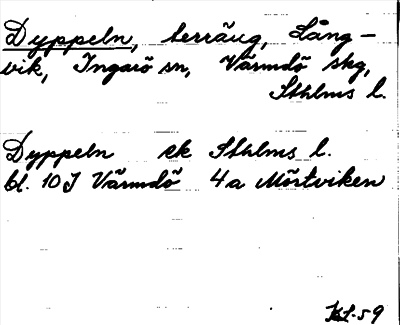 Dyppeln, terräng, Lång-
vik, Ingarö sn, Värmdö skg,
Sthlms l.
Dyppeln ek Sthlms l.
bl. 10 J Värmdö 4a Mörtviken
-59